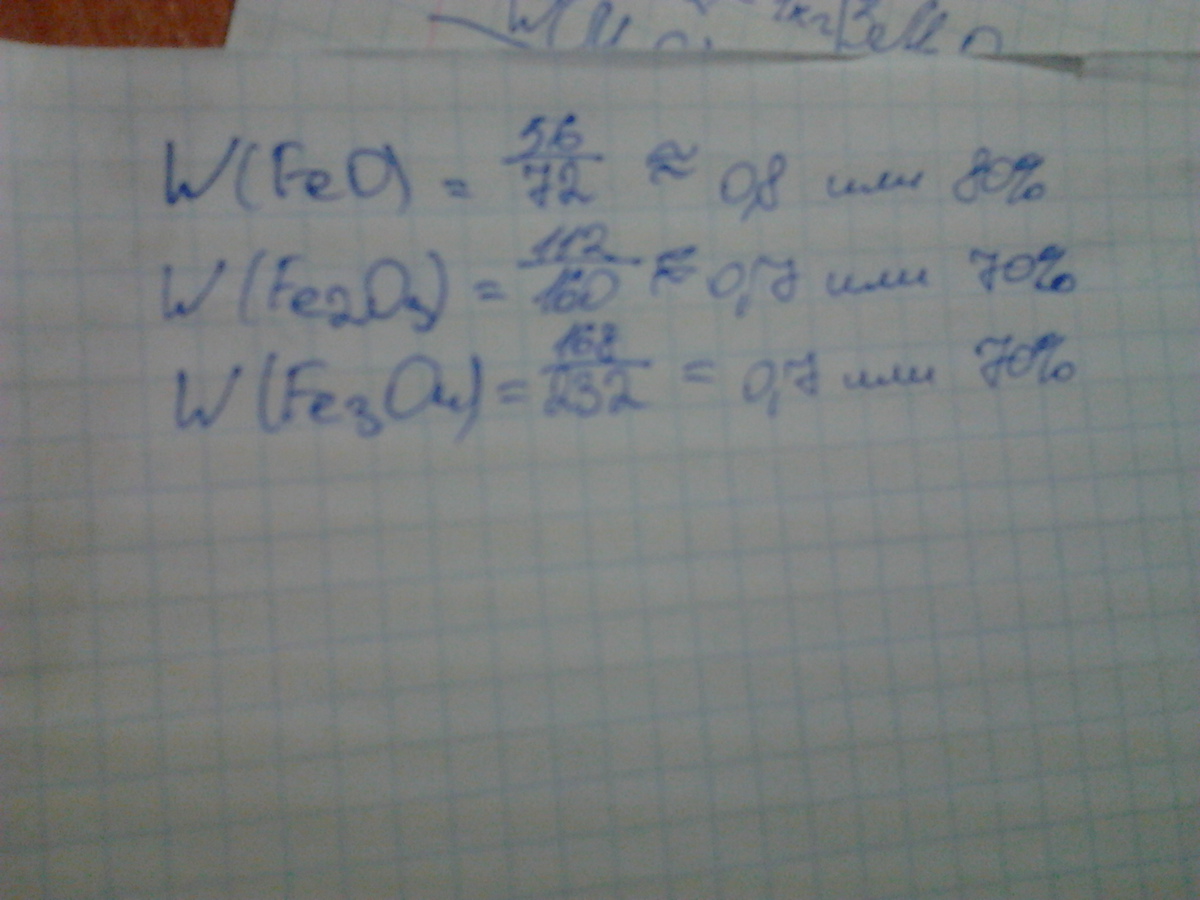 W(FeO) = 56/72 ≈ 0,8 или 80%
W(Fe2O3) = 112/160 ≈ 0,7 или 70%
W(Fe3O4) = 168/232 = 0,7 или 70%